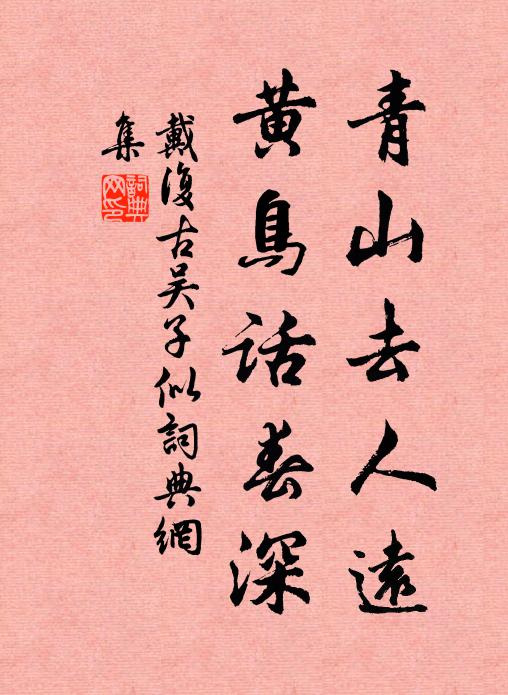 青山去人遠
黄鳥話春深
戴復古吴子似詞典網
集
詞典
网印